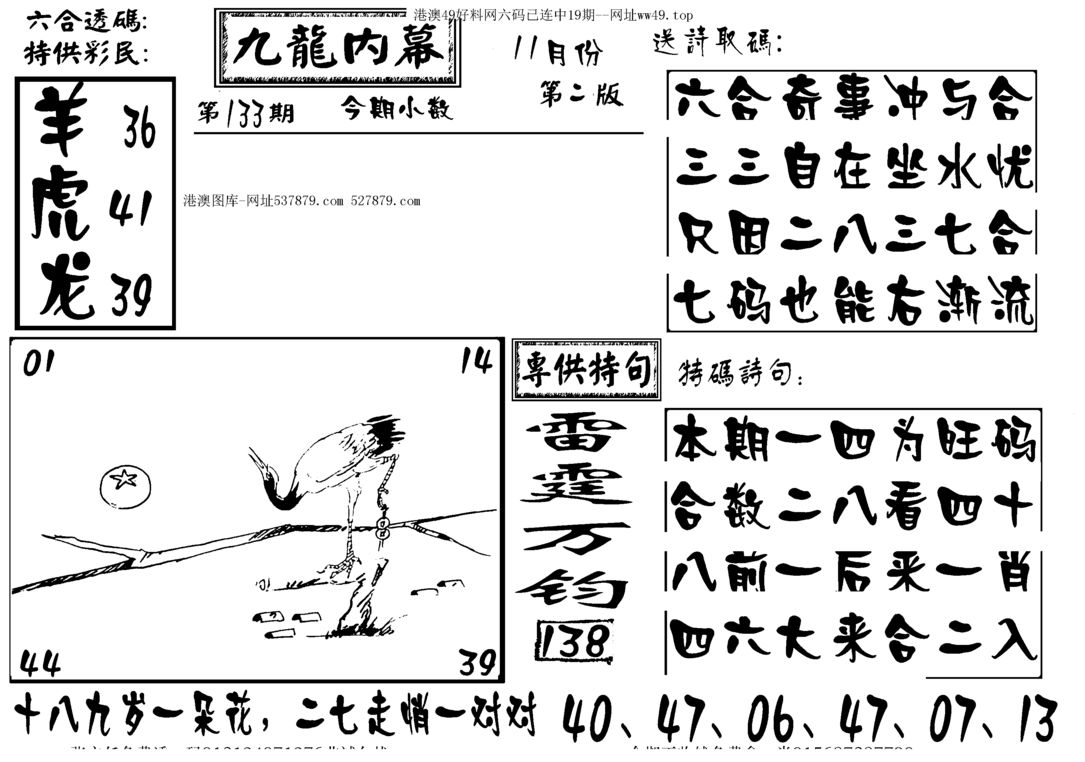 港澳49好料网六码已连中19期--网址ww49.top
六合透碼:
特供彩民:
九龍内幕
11月份
第二版
第133期
今期小数
送詩取碼:
羊 36
虎 41
龙 39
港澳图库-网址537879.com 527879.com
六合奇事冲与合
三三自在坐水忧
只田二八三七合
七码也能右渐流
01
14
44
39
專供特句
雷霆万钧
138
特碼詩句:
本期一四为旺码
合数二八看四十
八前一后来一肖
四六大来合二入
十八九岁一朵花，二七走悄一对对
40、47、06、47、07、13